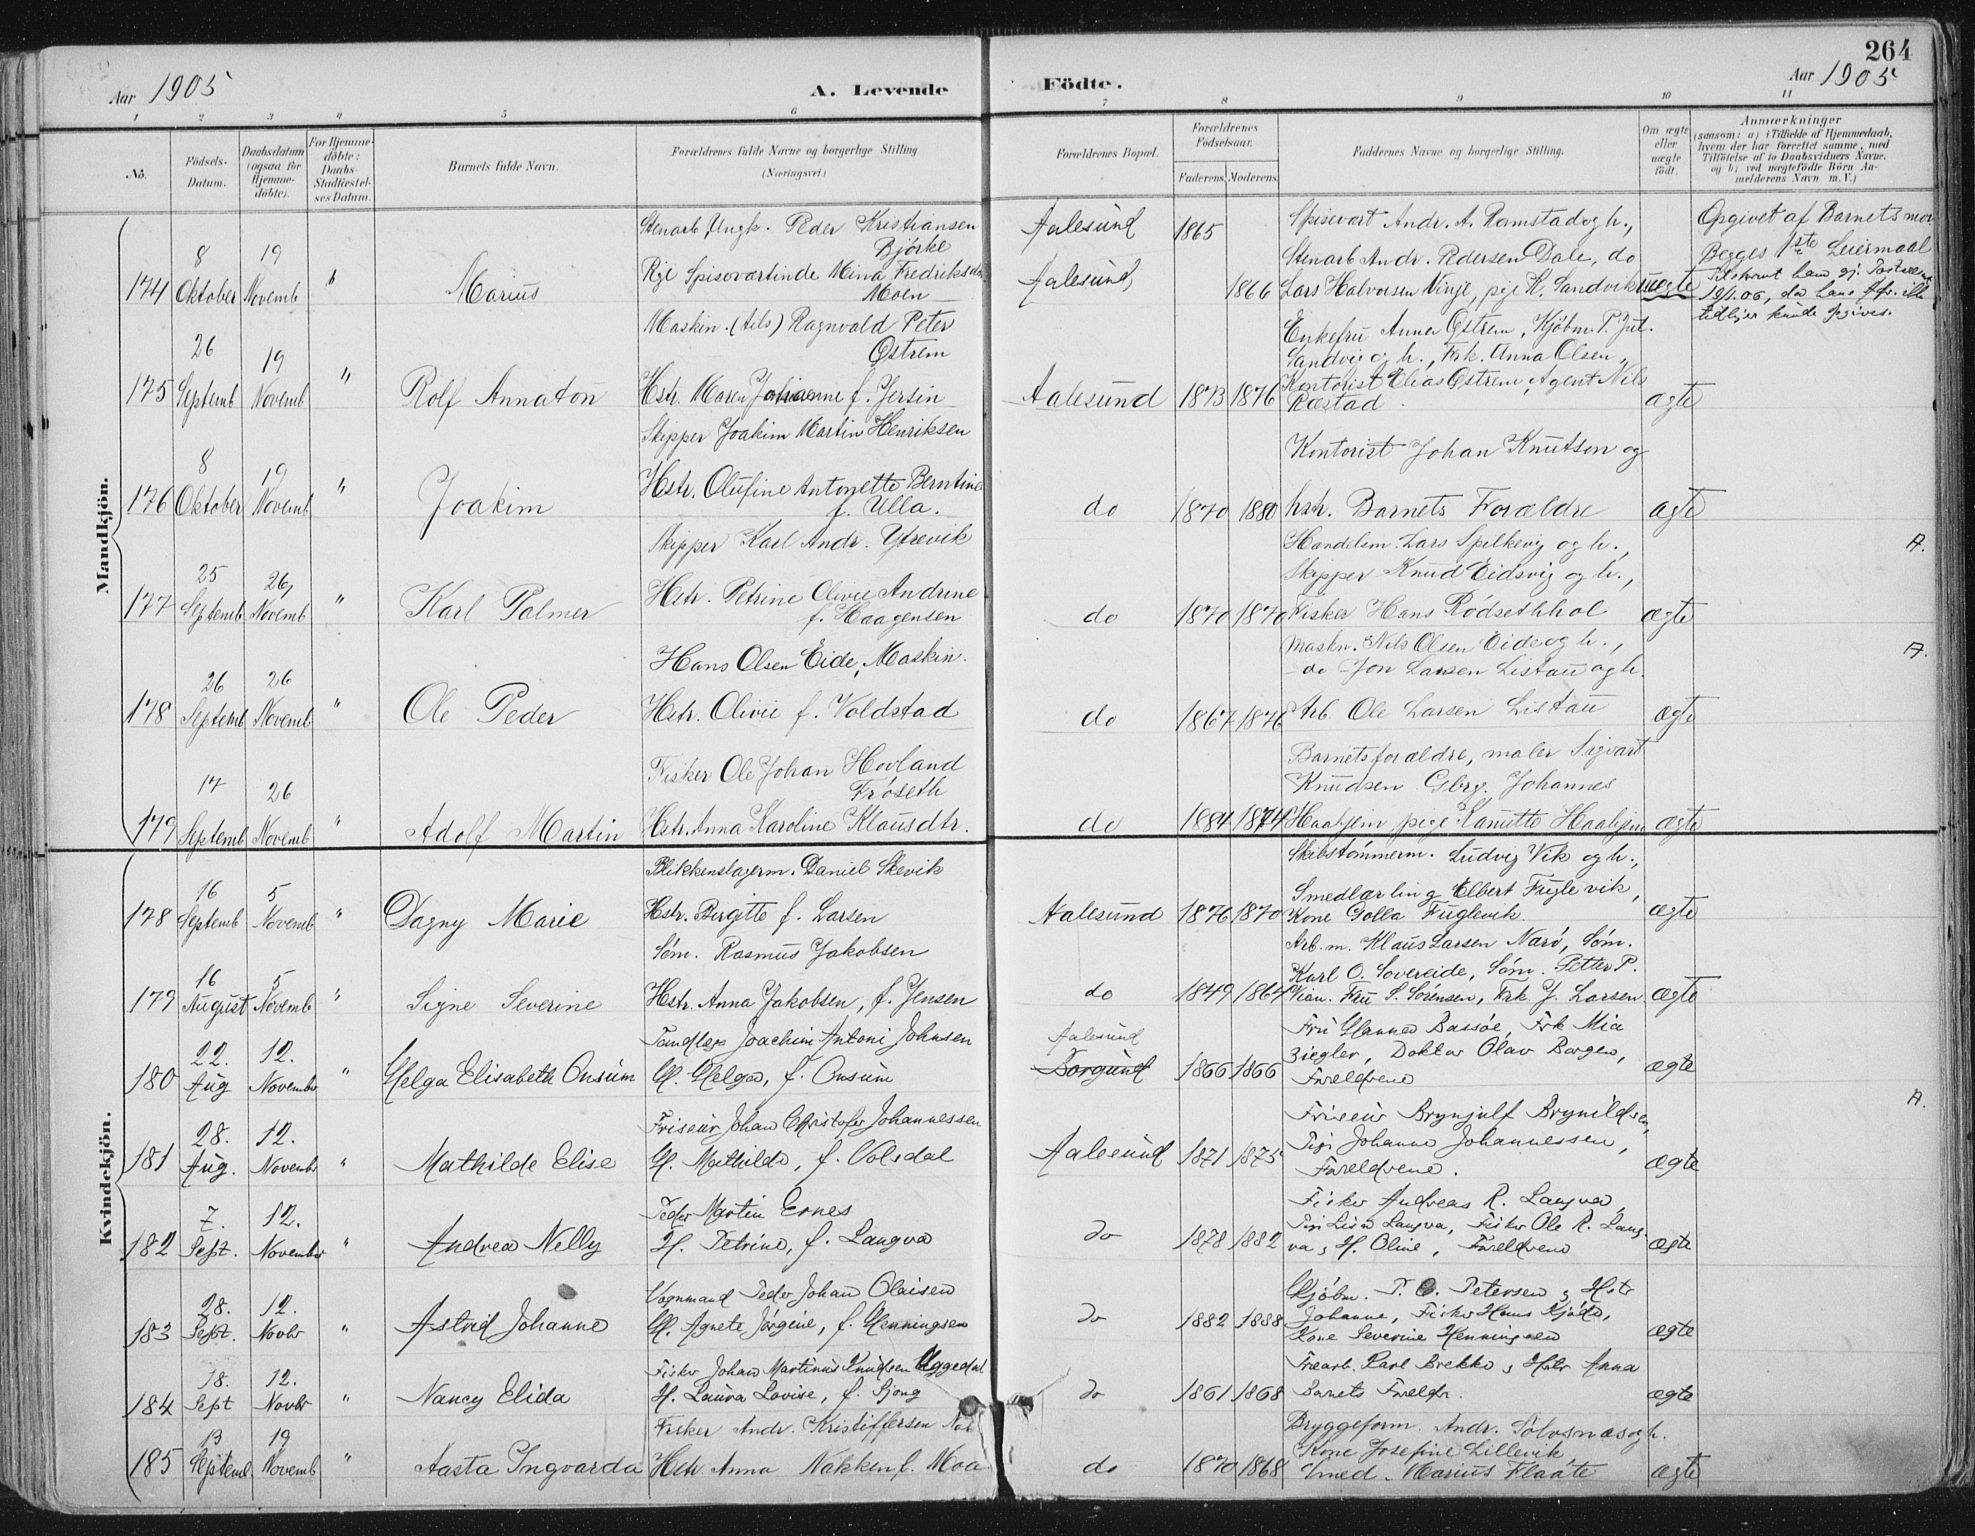 264
Aar 1905
A. Levende
Födte.
Aar 1905
1 2 3 4 5 6 7 8 9 10 11
No.
Födsels-Datum.
Daabsdatum (ogsaa for Hjemme-döbte).
For Hjemme-döbte: Daabs-Stadfæstel-ses Datum.
Barnets fulde Navn.
Forældrenes fulde Navne og borgerlige Stilling (Næringsvei)
Forældrenes Bopæl.
Forældrenes Födselsaar.
Faderens.
Moderens.
Faddernes Navne og borgerlige Stilling.
Om ægte eller uægte födt.
Anmærkninger
(saasom: a) i Tilfælde af Hjemmedaab, hvem der har forrettet samme, med Tilföielse af to Daabsvidners Navne, og b) ved uægtefödte Börn An-melderens Navn m. V.)
Mandkjön.
174
8 Oktober
19 Novemb
"
Marius
Stenarb. Ungk. Peder Kristiansen
Bjørke
Pige Spiseværtinde Mina Fredriksdtr
Moen
Aalesund
Aalesund,
1865
1866
Spisevært Andr. A. Ramstad og h.,
Stenarb Andr. Pedersen Dale, do
Lars Halvorsen Vinje, pige K. Sandvik
uægte
Opgivet af Barnets mor
Begges 1ste Leiermaal
175
26 Septemb
19 Novemb
"
Rolf Annaton
Maskin. (Aals) Ragnvald Peter
Østrem
Hstr. Maren Johanne f. Jersin
Aalesund
1873
1876
Enkefru Anna Østrem, Kjøbm. P. Jul.
Sandvig og h., Frk. Anna Olsen,
Kontorist Elias Østrem, Agent Nils
Ræstad.
ægte
176
8 Oktober
19 Novemb
"
Joakim
Skipper Joakim Martin Henriksen
Hstr. Olufine Antonette Berntine
f. Ulla.
do
1870
1880
Kontorist Johan Knutson og
hstr. Barnets Forældre
ægte
177
25 Septemb
26 Novemb
"
Karl Palmer
Skipper Karl Andr. Ytrevik
Hstr. Petrine Olivie Andrine
f. Haagensen
do
1870
1870
Handelsm. Lars Spilkevig og h.,
Skipper Knud Eidsvig og h.,
Fisker Hans Rødsethhol
ægte
A.
178
26 Septemb
26 Novemb
"
Ole Peder
Hans Olsen Eide, Maskin.
Hstr. Olivie f. Voldstad
do
1867
1876
Maskn. Nils Olsen Eide og h.,
do Jon Larsen Listau og h.
Arb. Ole Larsen Listau
ægte
A.
179
17 Septemb
26 Novemb
"
Adolf Martin
Fisker Ole Johan Hovland
Krøseth
Hstr. Anna Karoline Klausdtr.
do
1884
1874
Barnets forældre, maler Sigvart
Knudsen Gbrg. Johannes
Haahjem pige Kanutte Haahjem
ægte
Kvindekjön.
178
16 Septemb
5 Novemb
"
Dagny Marie
Blikkenslagerm. Daniel Skevik
Hstr. Bergitte f. Larsen
Aalesund
1876
1870
Skibstømmerm. Ludvig Vik og h.,
Smedlærling Elbert Fuglevik,
Kone Golla Fuglevik
ægte
179
16 August
5 Novemb
"
Signe Severine
Søm. Rasmus Jakobsen
Hstr. Anna Jakobsen, f. Jensen
do
1849
1864
Arb.m. Klaus Larsen Narø, Søm.
Karl O. Sovereide, Søm. Petter P.
Fru S. Sørensen, Frk. J. Larsen
ægte
180
22. Aug
12. November
"
Helga Elisabeth Onsum
Tandlæge Joachim Antoni Johnsen
H. Helga, f. Onsum
Aalesund
Borgund
1866
1866
Fru Hanna Bassøe, Frk Mia
Ziegler, Doktor Olav Borgen,
Foreldrene
ægte
181
28. Aug.
12. Novembr
"
Mathilde Elise
Friseur Johan Christofer Johannessen
H. Mathilde, f. Volsdal
Aalesund
1871
1875
Friseur Brynjulf Brynildsen,
Pige Johanne Johannessen,
Foreldrene.
ægte
A.
182
7. Sept.
12. November
"
Andrea Nelly
Peder Martin Ernes
H. Petrine, f. Langva
do
1878
1882
Fisker Andreas R. Langva,
Pige Lisa Langva, Fisker Ole R. Lang-
va, H. Oline, Foreldrene
ægte
183
28. Sept.
12. Novbr
"
Astrid Johanne
Vognmand Peder Johan Olaisen
H. Agnete Jørgine, f. Henningsen
do
1882
1888
Kjøbm. P. O. Petersen, Hstr
Johanne, Fisker Hans Kjøde,
Kone Severine Henningsen
ægte
184
18. Sept
12. Novbr
"
Nancy Elida
Fisker Johan Martinus Knudsen Uggedal
H. Laura Lovise, f. Sjong
do
1861
1868
Træarb. Karl Brekke, Hstr Anna
Barnets Foreldr.
ægte
185
13 Septemb
19 Novemb
"
Aasta Ingvarda
Fisker Andr. Kristiffersen
Hstr Anna Nakken f. Moa
do
1870
1868
Bryggeform. Andr. Sølvsnæs og h.
Kone Josefine Lillevik
Smed. Marius Flaate
ægte